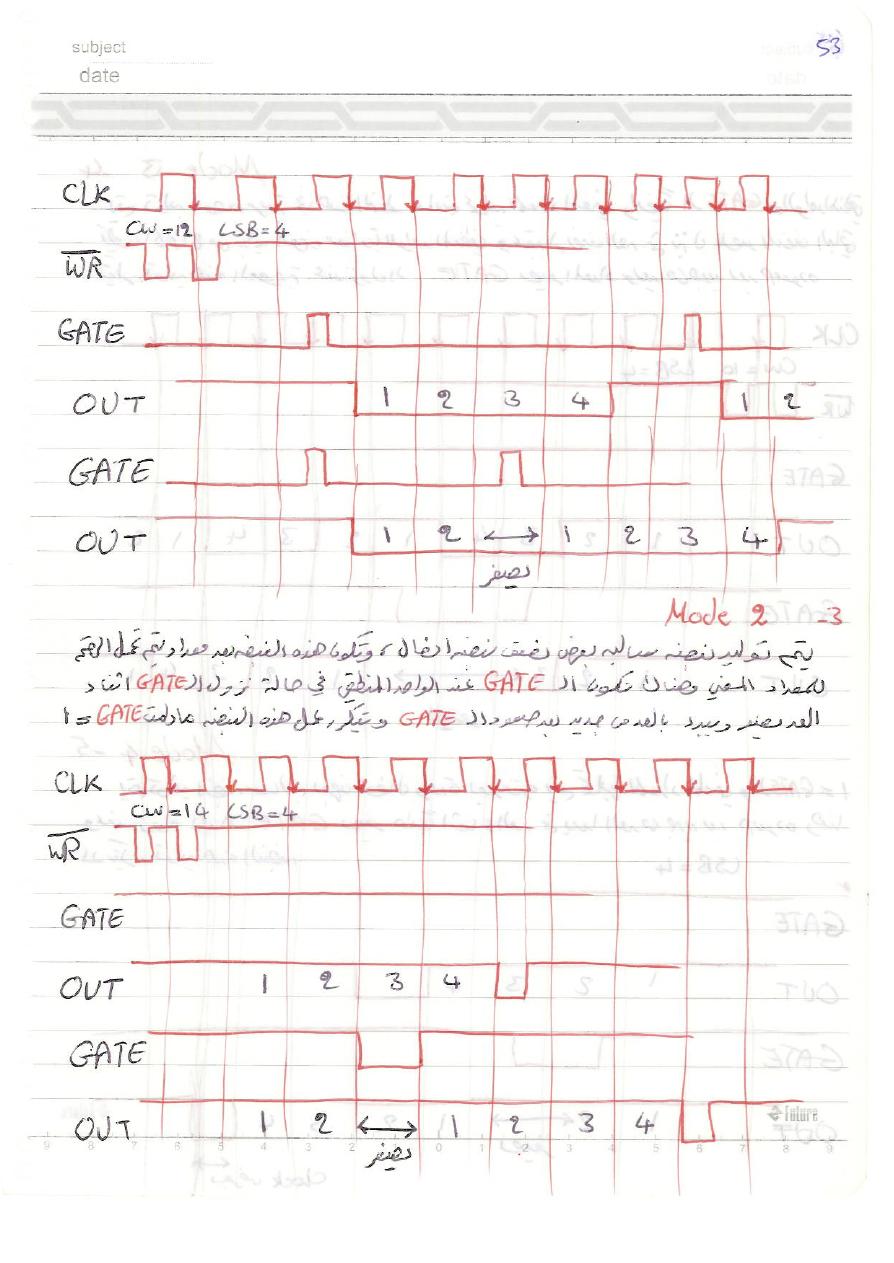 subject
53
date
CLK
CW=12 LSB=4
WR
GATE
OUT 1 2 3 4 1 2
GATE
OUT 1 2 1 2 3 4
يصفر
3- Mode 2
يتم توليد نبضه سالبه بعرض نصف نبضه ، وتكون هذه النبضه بعد
للمعداد وهنا تكون الـ GATE عند الواحد المنطقي في حالة نزول الـ GATE اثناء
العد يصفر بالعد من جديد بعد صعود الـ GATE وتتكرر عمل هذه النبضه مادامت GATE = 1
CLK
CW=14 LSB=4
WR
GATE
OUT 1 2 3 4
GATE
OUT 1 2 1 2 3 4
يصفر
Future
9 8 7 6 5 4 3 2 1 0 1 2 3 4 5 6 7 8 9